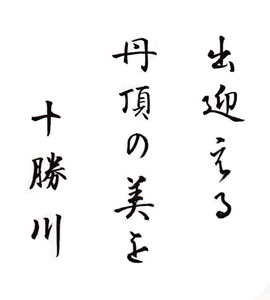 出迎える
丹頂の美を
十勝川